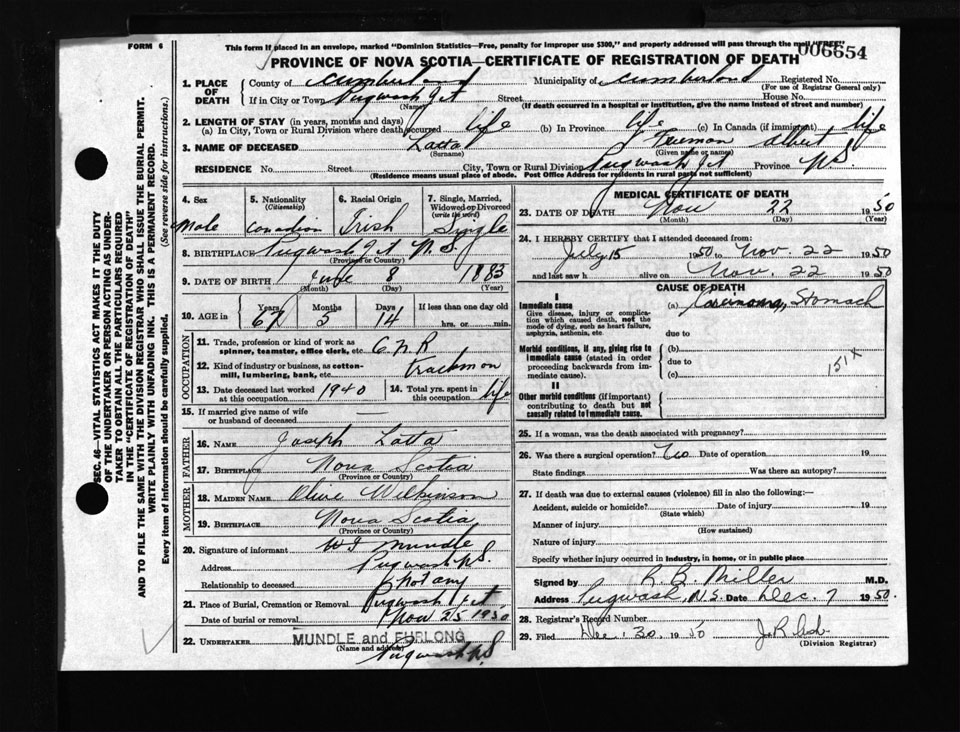 FORM 6
This form if placed in an envelope, marked "Dominion Statistics—Free, penalty for improper use $300," and properly addressed will pass through the mail "FREE"
006654
PROVINCE OF NOVA SCOTIA—CERTIFICATE OF REGISTRATION OF DEATH
SEC. 46—VITAL STATISTICS ACT MAKES IT THE DUTY
OF THE UNDERTAKER OR PERSON ACTING AS UNDER-
TAKER TO OBTAIN ALL THE PARTICULARS REQUIRED
IN THE "CERTIFICATE OF REGISTRATION OF DEATH"
AND TO FILE THE SAME WITH THE DIVISION REGISTRAR WHO SHALL ISSUE THE BURIAL PERMIT.
WRITE PLAINLY WITH UNFADING INK. THIS IS A PERMANENT RECORD.
Every item of information should be carefully supplied. (See reverse side for instructions.)
1. PLACE OF DEATH
County of Cumberland Municipality of Cumberland Registered No.
(For use of Registrar General only)
If in City or Town Pugwash Jct Street House No.
(Name) (If death occurred in a hospital or institution, give the name instead of street and number)
2. LENGTH OF STAY (in years, months and days)
(a) In City, Town or Rural Division where death occurred life (b) In Province life (c) In Canada (if immigrant) life
3. NAME OF DECEASED Latta Albert
(Surname) (Given name or names)
RESIDENCE No. Street City, Town or Rural Division Pugwash Jct Province N.S.
(Residence means usual place of abode. Post Office Address for residents in rural parts not sufficient)
4. Sex Male
5. Nationality (Citizenship) Canadian
6. Racial Origin Irish
7. Single, Married, Widowed or Divorced (write the word) Single
8. BIRTHPLACE Pugwash Jct N.S.
(Province or Country)
9. DATE OF BIRTH June 8 1883
(Month) (Day) (Year)
10. AGE in Years 67 Months 5 Days 14 If less than one day old
hrs. or min.
OCCUPATION
11. Trade, profession or kind of work as
spinner, teamster, office clerk, etc. C.N.R
12. Kind of industry or business, as cotton-
mill, lumbering, bank, etc. trackman
13. Date deceased last worked at this occupation 1940
14. Total yrs. spent in this occupation life
15. If married give name of wife
or husband of deceased —
FATHER
16. NAME Joseph Latta
17. BIRTHPLACE Nova Scotia
(Province or Country)
MOTHER
18. MAIDEN NAME Olive Wilkinson
19. BIRTHPLACE Nova Scotia
(Province or Country)
20. Signature of informant Mundle
Address Pugwash N.S.
Relationship to deceased not any
21. Place of Burial, Cremation or Removal Pugwash Jct
Date of burial or removal Nov 25 1950
22. UNDERTAKER MUNDLE and FURLONG
(Name and address) Pugwash N.S.
MEDICAL CERTIFICATE OF DEATH
23. DATE OF DEATH Nov 22 1950
(Month) (Day) (Year)
24. I HEREBY CERTIFY that I attended deceased from:
July 15 1950 to Nov. 22 1950
and last saw h alive on Nov. 22 1950
CAUSE OF DEATH
I
Immediate cause
Give disease, injury or complica-
tion which caused death, not the
mode of dying, such as heart failure,
asphyxia, asthenia, etc.
(a) Carcinoma, Stomach
due to
Morbid conditions, if any, giving rise to
immediate cause (stated in order
proceeding backwards from
immediate cause).
(b)
due to
(c)
151X
II
Other morbid conditions (if important)
contributing to death but not
causally related to immediate cause.
25. If a woman, was the death associated with pregnancy?
26. Was there a surgical operation? No Date of operation 19
State findings Was there an autopsy?
27. If death was due to external causes (violence) fill in also the following:—
Accident, suicide or homicide? Date of injury 19
(State which)
Manner of injury
(How sustained)
Nature of injury
Specify whether injury occurred in industry, in home, or in public place
Signed by R. B. Miller M.D.
Address Pugwash, N.S. Date Dec. 7 1950.
28. Registrar's Record Number
29. Filed Dec. 30. 1950
(Division Registrar)